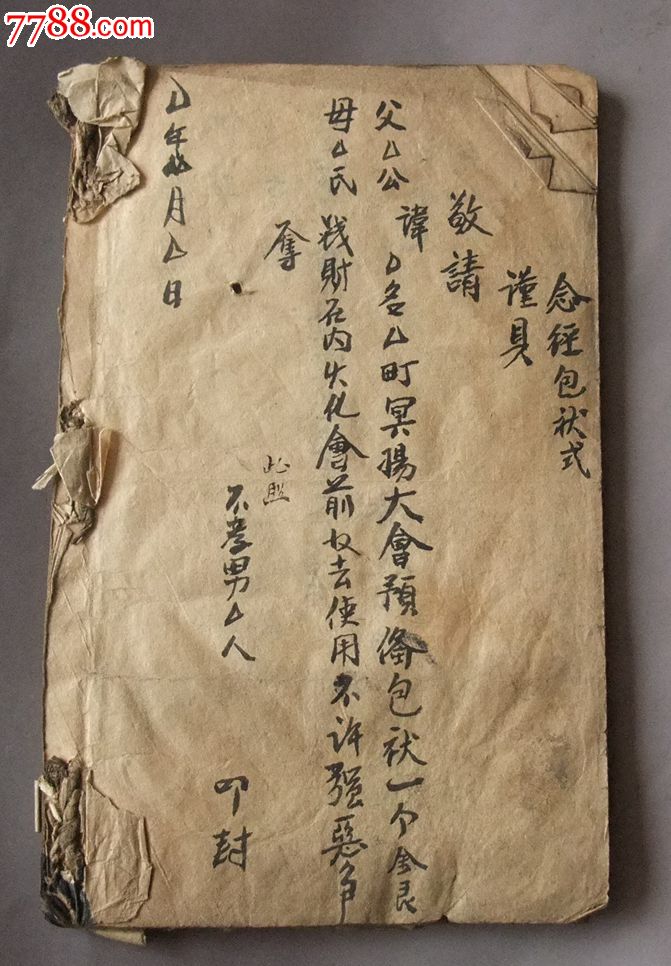 7788.com
念經包袱式
謹具
敬請
父厶公
諱厶名厶町冥揚大會預俻包袱一个金艮
母厶氏
財石内火化會前收去使用不許强惡爭
奪
此照
不孝男厶人 叩封
厶年厶月厶日